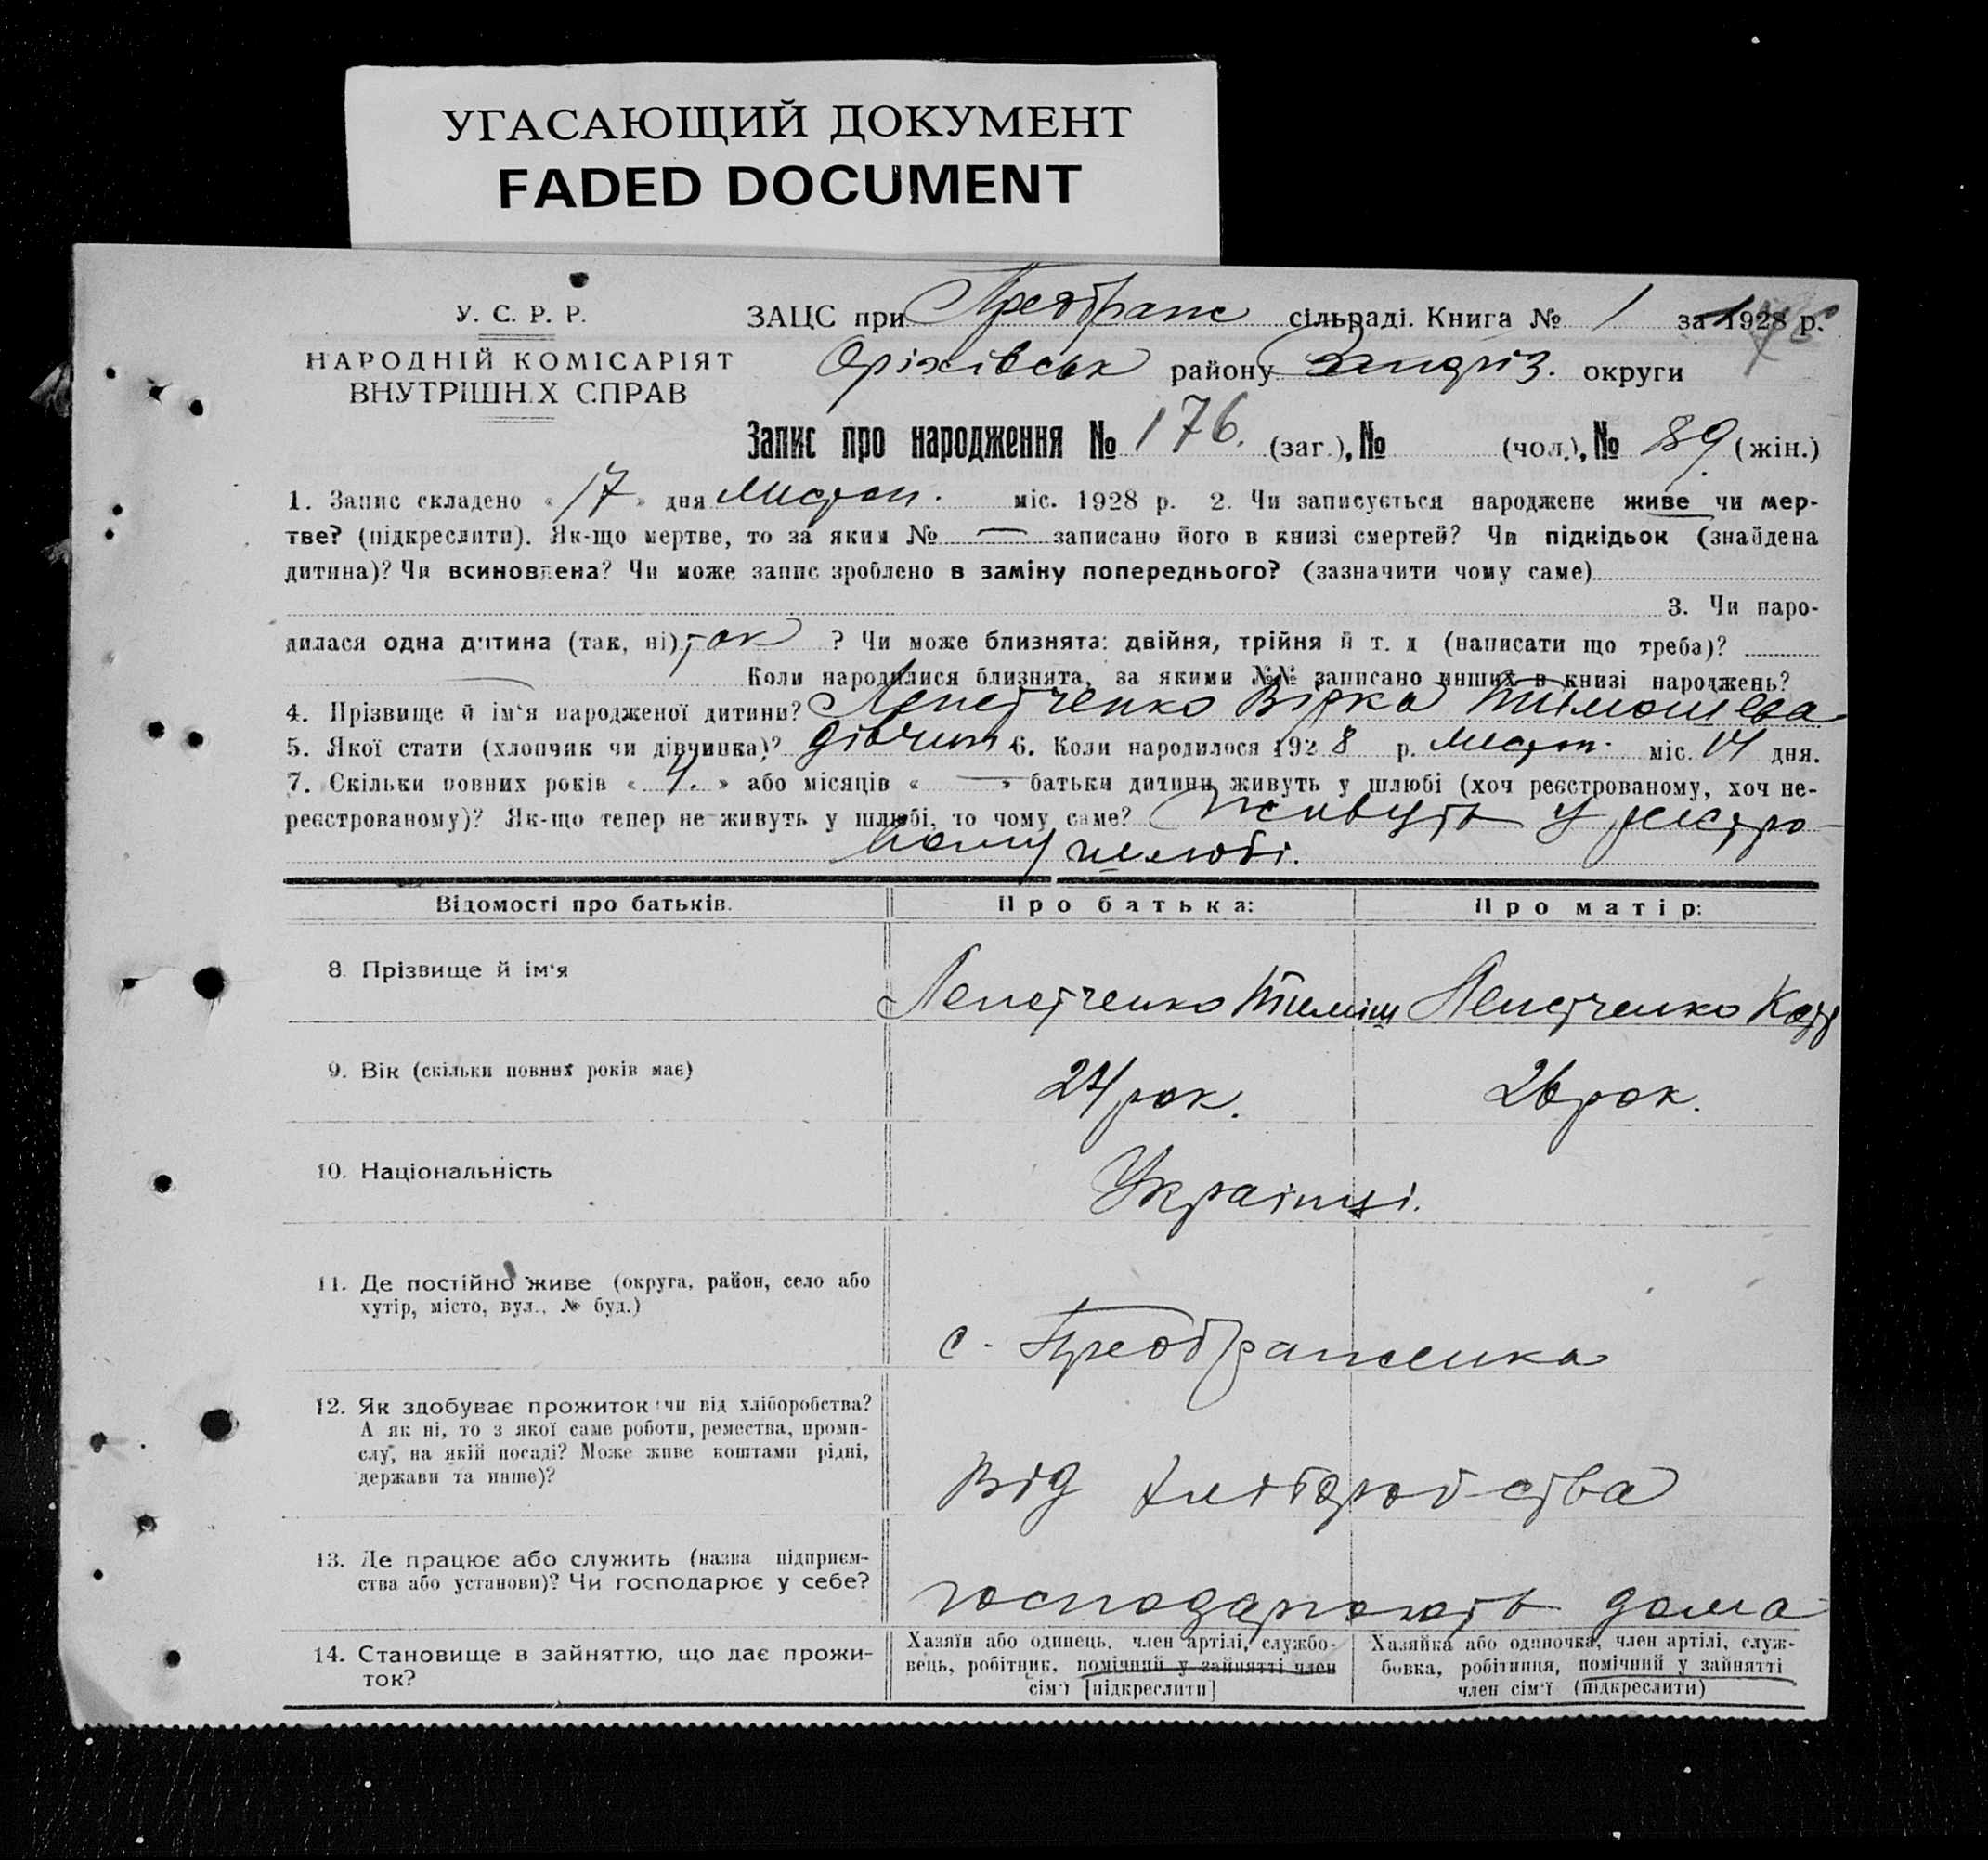 УГАСАЮЩИЙ ДОКУМЕНТ
FADED DOCUMENT
У. С. Р. Р.
НАРОДНІЙ КОМІСАРІЯТ
ВНУТРІШН.Х СПРАВ
ЗАЦС при Преображ сільраді. Книга № 1 за 1928 р.
Оріхівськ району Запоріз. округи
Запис про народження № 176. (заг.), № (чол.), № 89 (жін.)
1. Запис складено « 17 » дня Листоп. міс. 1928 р. 2. Чи записується народжене живе чи мер-
тве? (підкреслити). Як-що мертве, то за яким № — записано його в книзі смертей? Чи підкідьок (знайдена
дитина)? Чи всиновлена? Чи може запис зроблено в заміну попереднього? (зазначити чому саме)
3. Чи наро-
дилася одна дитина (так, ні) так ? Чи може близнята: двійня, трійня й т. д (написати що треба)?
— Коли народилися близнята, за якими №№ записано инших в книзі народжень?
4. Прізвище й ім‘я народженої дитини? Лепетченко Вірка Тимошева
5. Якої стати (хлопчик чи дівчинка)? дівчин 6. Коли народилося 1928 р. Листоп. міс. 14 дня.
7. Скільки повних років « 4. » або місяців « — » батьки дитини живуть у шлюбі (хоч реєстрованому, хоч не-
реєстрованому)? Як-що тепер не живуть у шлюбі, то чому саме? Живуть у реєстро-
ваному шлюбі.
Відомості про батьків.
Про батька:
Про матір:
8. Прізвище й ім‘я
Лепетченко Тиміш
Лепетченко Катр
9. Вік (скільки повних років має)
24 рок.
26 рок.
10. Національність
Українці.
11. Де постійно живе (округа, район, село або
хутір, місто, вул., № буд.)
с. Преображенка
12. Як здобуває прожиток: чи від хліборобства?
А як ні, то з якої саме роботи, ремества, проми-
слу, на якій посаді? Може живе коштами рідні,
держави та инше)?
Від хліборобства
13. Де працює або служить (назва підприєм-
ства або установи)? Чи господарює у себе?
господарюють дома
14. Становище в зайняттю, що дає прожи-
ток?
Хазяїн або одинець, член артілі, службо-
вець, робітник, помічний у зайнятті член
сім‘ї [підкреслити]
Хазяйка або одиночка, член артілі, служ-
бовка, робітниця, помічний у зайнятті
член сім‘ї (підкреслити)